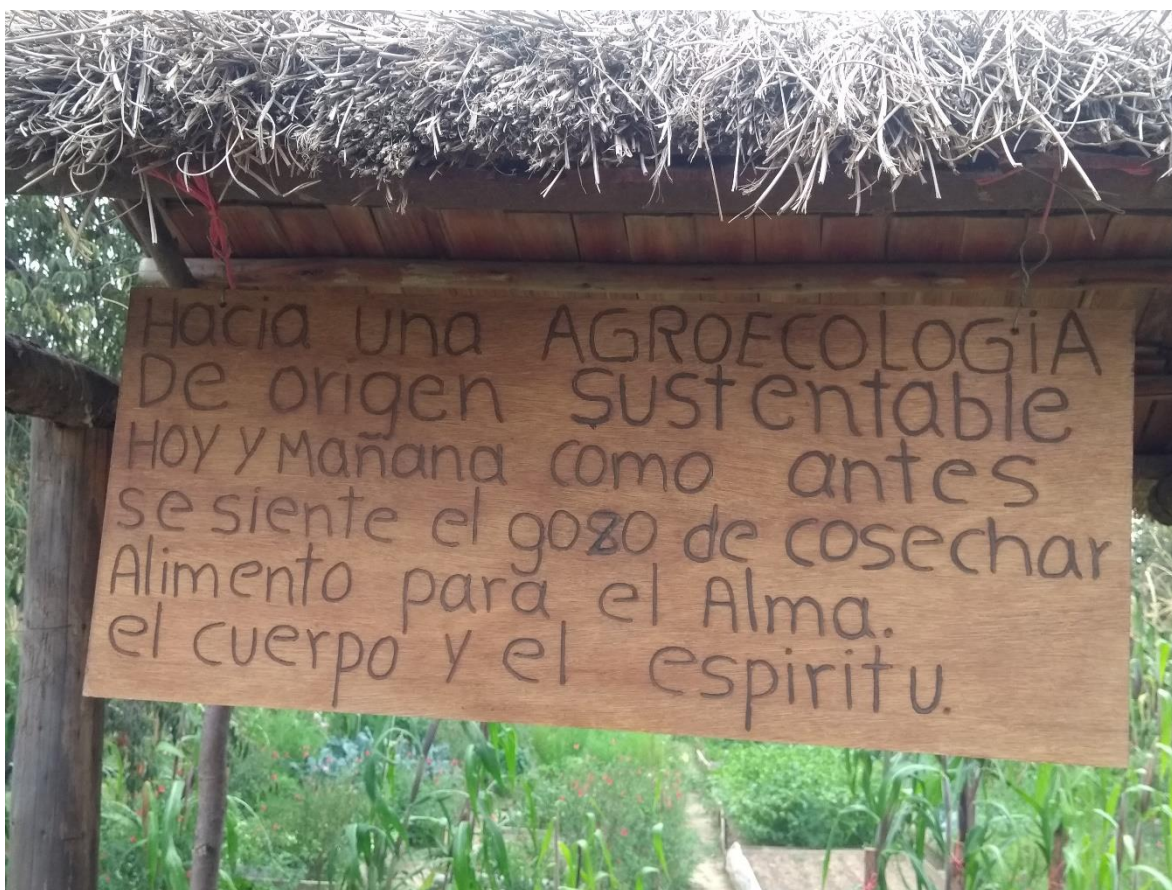 Hacia una AGROECOLOGiA
De origen sustentable
HOY Y Mañana como antes
se siente el gozo de cosechar
Alimento para el Alma.
el cuerpo y el espiritu.